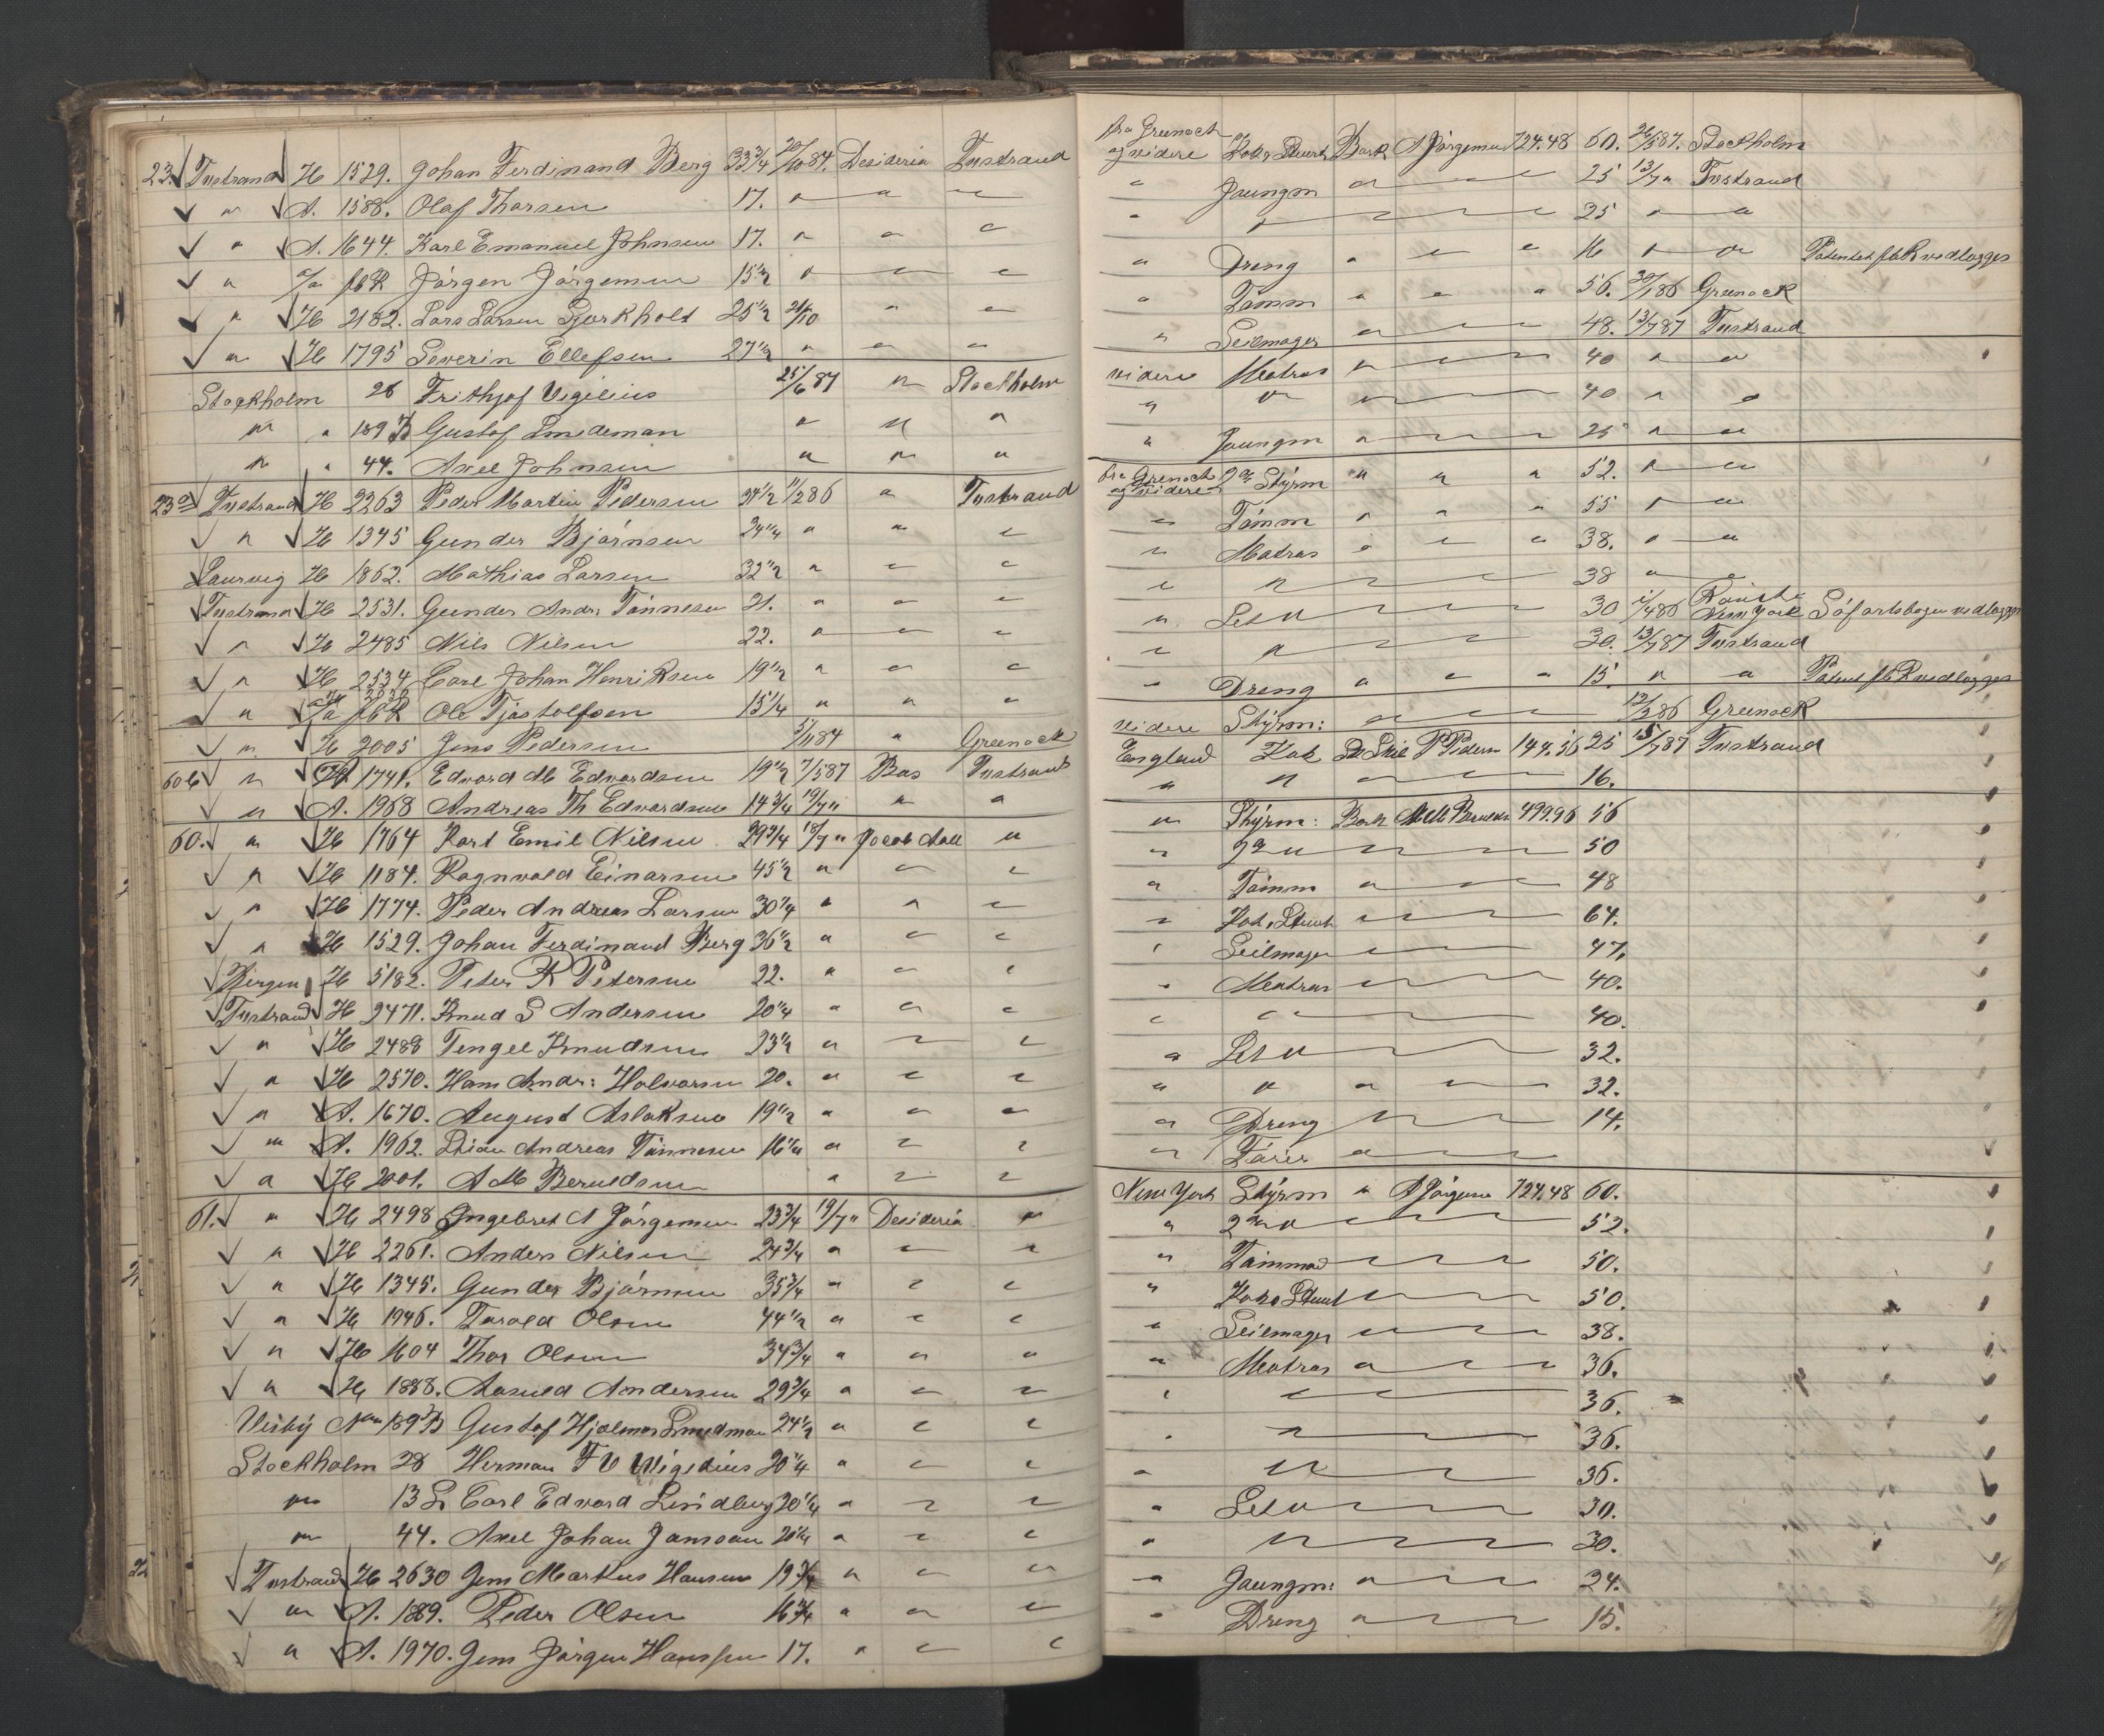 23. Tvstrand H 1529. Johan Ferdinand Berg 33 3/4 20/10 84. Desideria Tvstrand
" A. 1588. Olaf Thorsen 17. " " "
" A. 1644. Karl Emanuel Johnsen 17. " " "
" Jörgen Jörgensen 15 1/2 " " "
" H 2182. Lars Larsen Bjorkholt 25 1/2 21/10 " "
" H 1795 Severin Ellefsen 27 1/2 " " "
Stockholm 28 Frithjof Vigilius 25/6 87 " Stockholm
" " 189 B Gustaf Lindeman " " "
" " 44. Axel Johnsen " " "
23 a Tvstrand H 2263 Peder Martin Pedersen 34 1/2 11/2 86 " Tvstrand
" H 1345 Gunder Bjørnsen 34 1/4 " " "
Laurvig H 1862. Mathias Larsen 32 1/2 " " "
Tvstrand H 2531. Gunder Andr: Tönnesen 21. " " "
" H 2485 Nils Nilsen 22. " " "
" H 2534 Carl Johan Henriksen 19 1/2 " " "
" Ole Tjostolfsen 15 1/4 " " "
" H 2005 Jens Pedersen 5/11 84 " Greenock
60 b " H 1741. Edvard M Edvardsen 19 1/2 7/5 87 Bas Tvstrand
" A. 1968 Andreas Th Edvardsen 14 3/4 19/7 " " "
60. " H 1764 Karl Emil Nilsen 29 3/4 18/7 " Jacob Aall "
" H 1184. Ragnvald Einarsen 45 1/2 " " "
" H 1774. Peder Andreas Larsen 30 1/4 " " "
" H 1529. Johan Ferdinand Berg 36 1/2 " " "
Bergen H 5182. Peter R Petersen 22. " " "
Tvstrand H 2471. Knud S Andersen 20 1/4 " " "
" H 2488 Tengel Knudsen 23 1/2 " " "
" H 2570. Hans Andr: Halvorsen 20. " " "
" A. 1670. August Aslaksen 19 1/2 " " "
" A. 1962. Stian Andreas Tönnesen 16 1/4 " " "
" H 2001. A M Beruldsen " " "
61. " H 2498 Ingebret A Jörgensen 23 3/4 19/7 " Desideria "
" H 2261. Anders Nilsen 24 3/4 " " "
" H 1345. Gunder Bjørnsen 35 3/4 " " "
" H 1946. Torold Olsen 44 1/2 " " "
" H 1604 Thor Olsen 34 3/4 " " "
" H 1888. Aasuld Andersen 29 3/4 " " "
Visby 189 B Gustaf Hjalmar Lindman 24 1/2 " " "
Stockholm 28 Herman F V Wigilius 20 1/4 " " "
" 13 L Carl Edvard Lindberg 20 1/4 " " "
" 44. Axel Johan Jansson 20 1/4 " " "
Tvstrand H 2630 Jens Markus Hansen 19 3/4 " " "
" A. 1889. Peder Olsen 16 3/4 " " "
" A. 1970. Jens Jörgen Hanssen 17. " " "
fra Greenock
og videre Kok & Stuert Bark A Jörgensen 724.48 60. 26/5 87. Stockholm
" Jaungm " " " 25 13/7 " Tvstrand
" " " " " 25 " "
" Dreng " " " 16 " " Patentet vedlægges
" Tömm " " " 56. 30/1 86 Greenock
" Seilmager " " " 48. 13/7 87 Tvstrand
videre Matros " " " 40 " "
" " " " " 40 " "
" Jaungm " " " 25 " "
fra Greenock
og videre 2den Styrm " " " 52. " "
" Tömm " " " 55 " "
" Matros " " " 38. " "
" " " " " 38 " "
" Let " " " " 30 1/4 86 Römte New York Söfartsbogen vedlægges
" " " " " 30. 13/7 87 Tvstrand
" Dreng " " " 15 " " Patent vedlægges
videre Styrm: " " " 12/2 86 Greenock
England Kok P Pedersen 144.56 25 18/7 87 Tvstrand
" " " " " 16.
" Styrm: Bark A M Berulds 499.96 56
" 2den " " " " 50
" Tömm " " " 48
" Kok & Stuert " " " 64.
" Seilmager " " " 47.
" Matros " " " 40.
" " " " " 40.
" Let " " " " 32.
" " " " " 32.
" Dreng " " " 14.
" Förer " " "
New York Styrm " A Jörgensen 724.48 60.
" 2den " " " " 52.
" Tömmmd " " " 50.
" Kok & Stuert " " " 50.
" Seilmager " " " 38.
" Matros " " " 36.
" " " " " 36.
" " " " " 36.
" " " " " 36.
" Let " " " " 30.
" " " " " 30.
" Jaungm: " " " 24.
" Dreng " " " 15.